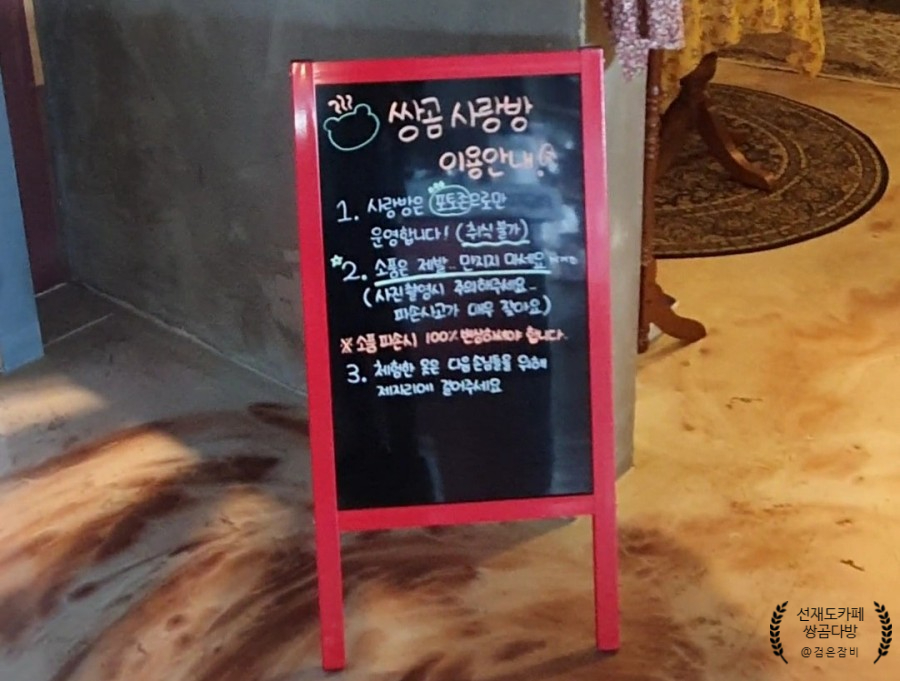 쌍곰 사랑방
이용안내
1. 사랑방은 포토존으로만
운영합니다! (취식불가)
2. 소품은 제발.. 만지지 마세요
(사진촬영시 주의해주세요..
파손사고가 매우 잦아요)
※ 소품 파손시 100% 변상하셔야 합니다.
3. 체험한 옷은 다음 손님들을 위해
제자리에 걸어주세요
선재도카페
쌍곰다방
@검은잠비